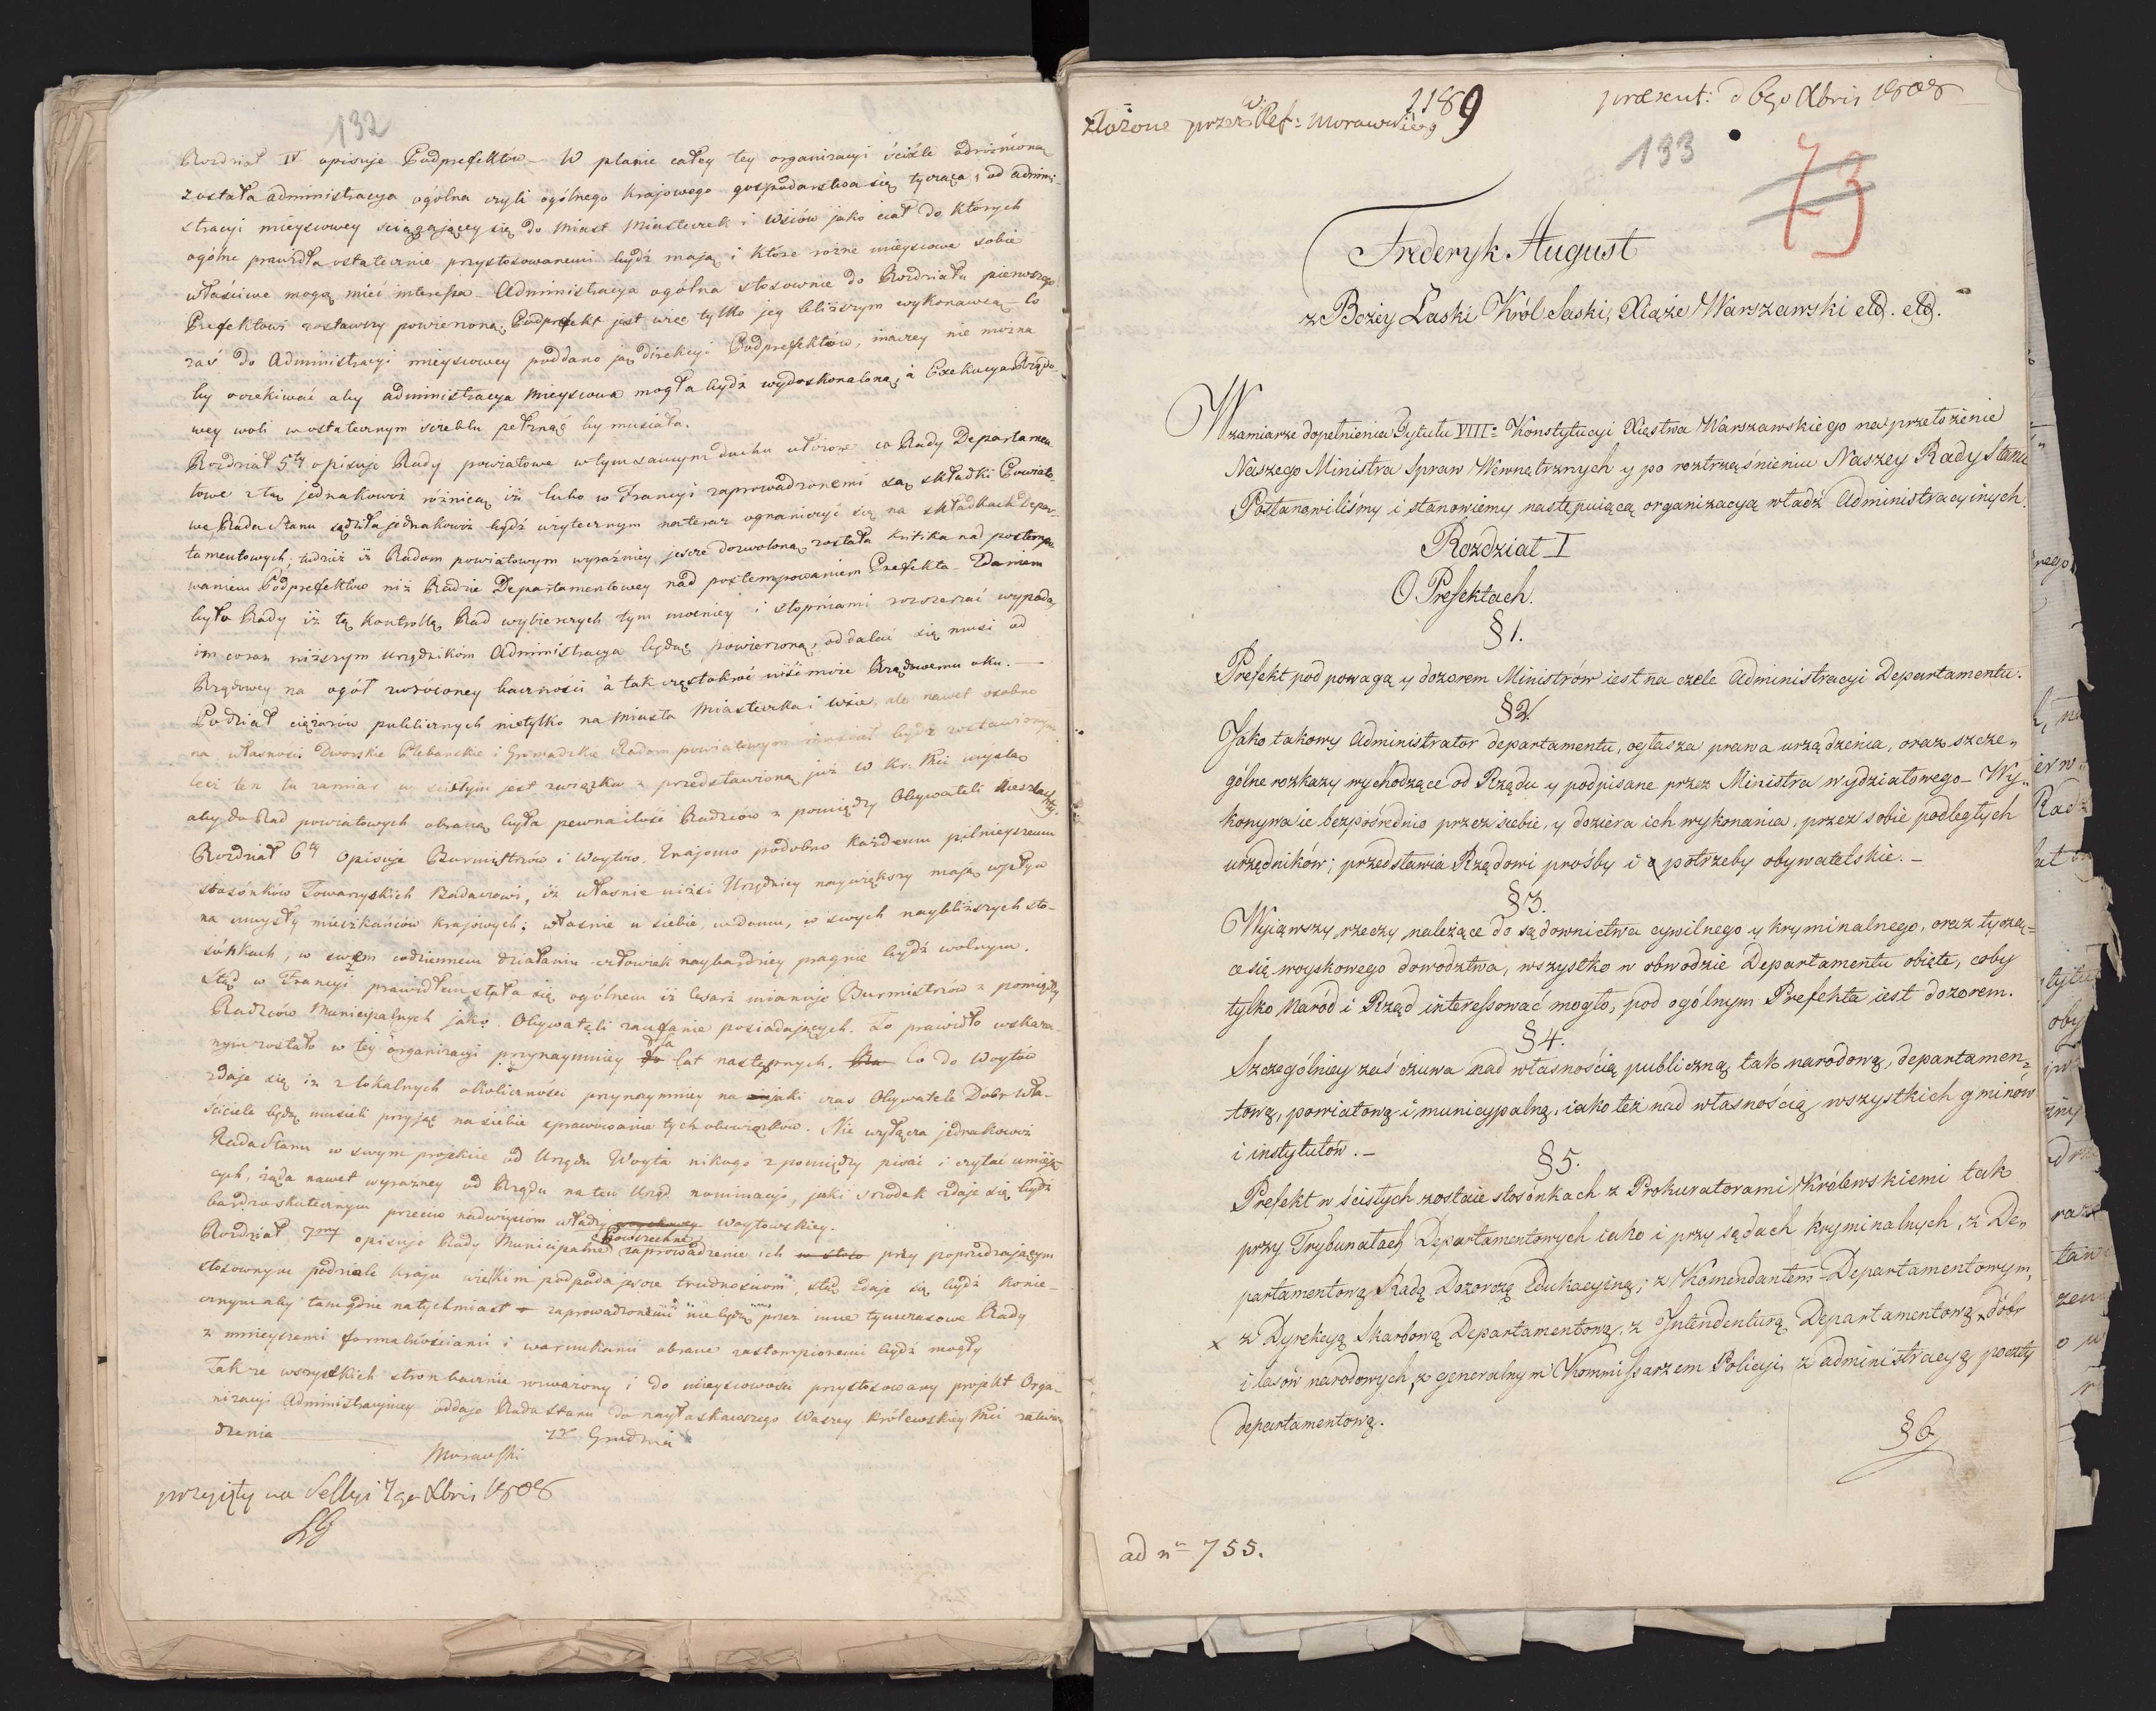 132
Rozdział IV opisuje Podprefektów – W planie całey tey organizacyi ściśle odróżnioną
została administracya ogólna czyli ogólnego krajowego gospodarstwa się tycząca, od admini-
stracyi mieyscowey sciągającey się do Miast Miasteczek i Wsiów jako ciał do których
ogólne prawidła ostatecznie przystosowanemi bydź mają i które rózne mieyscowe sobie
właściwe mogą mieć interessa – Administracya ogólna stosownie do Rozdziału pierwszego
Prefektowi zostawszy powierzoną; Podprefekt jest więc tylko jey bliższym wykonawcą – Co
zaś do Administracyi mieyscowey poddano ją direkcyi Podprefektów, inaczey nie można
by oczekiwać aby administracya Mieyscowa mogła bydź wydoskonaloną, à Exekucya Rządo-
wey woli w ostatecznym szczeblu pełznąć by musiała.
Rozdział 5ty opisuje Rady powiatowe w tym samym duchu ułożone co Rady Departamen
towe z tą jednakowoż różnicą iż lubo w Francyi zaprowadzonemi są składki Powiato-
we Rada Stanu sądziła jednakowoż bydź użytecznym na teraz ograniczyć się na składkach Depar-
tamentowych; tudzież iż Radom powiatowym wyraźniey jeszcze dozwoloną została kritika nad postempo
waniem Podprefektów niż Radzie Departamentowey nad postempowaniem Prefekta – Zdaniem
było Rady iż tę kontrollę Rad wybierczych tym mocniey i stopniami rozszerzać wypada,
im coraz niższym urzędnikom Administracya będąc powierzoną, oddalać się musi od
Rządowey na ogół zwróconey baczności à tak częstokroć uiść może Rządowemu oku. –
Podział ciężarów publicznych nietylko na Miasta Miasteczka i wsie, ale nawet osobno
na własności Dworskie Plebanskie i Gromadzkie Radom powiatowym musiał bydź zostawionym
lecz ten tu zamiar w scisłym jest związku z przedstawioną już W. Kr. Mci myslą
aby do Rad powiatowych obraną była pewna ilość Radzców z pomiędzy Obywateli Nieszlachty.
Rozdział 6ty Opisuje Burmistrzów i Woytów. Znajomo podobno każdemu pilnieyszemu
stosónków Towarzyskich Badaczowi, iż własnie niżsi Urzędnicy naywiększy mają wpływ
na umysły mieszkańców krajowych; własnie u siebie, w domu, w swych naybliższych sto-
sónkach, w swem codziennem działaniu człowiek naybardziey pragnie bydź wolnym.
Stąd w Francyi prawidłem stało się ogólnem iż Cesarz mianuje Burmistrzów z pomiędzy
Radzców Municypalnych jako Obywateli zaufanie posiadających. To prawidło wskaza-
nym zostało w tey organizacyi przynaymniey dla lat następnych. Co do Woytów
zdaje się iż z lokalnych okoliczności przynaymniey na jaki czas Obywatele Dóbr Wła-
ściciele będą musieli przyjąć na siebie sprawowanie tych obowiązków. Nie wyłącza jednakowoż
Rada Stanu w swym projekcie od Urzędu Woyta nikogo z pomiędzy pisać i czytać umieją
cych, żąda nawet wyrazney od Rządu na ten Urząd nominacyi, jaki srodek zdaje się bydź
bardzo skutecznym przeciw nadużyciom władzy Woytowskiey.
Rozdział 7my opisuje Rady Municipalne Powszechne zaprowadzenie ich przy poprzedzającym
stosownym podziale kraju wielkim podpada jeszcze trudnosciom, stąd zdaje się bydź konie-
cznym aby tam gdzie natychmiast zaprowadzonemi nie będą przez inne tymczasowe Rady
z mnieyszemi formalnościami i warunkami obrane zastompionemi bydź mogły
Tak ze wszystkich stron bacznie rozważony i do mieyscowości przystosowany projekt Orga-
nizacyi Administracyiney oddaje Rada Stanu do nayłaskawszego Waszey Królewskiey Mci zatwier
dzenia
Grudnia
Morawski
przyięty na Sessyi 7go Xbris 1808
złożone przez W. Ref: Morawskiego
2189
præsent: d 6go Xbris 1808
133
73
Frederyk August
z Bożey Łaski Król Saski, Xiąże Warszawski etc. etc.
W zamiarze dopełnienia Tytułu VIIIo Konstytucyi Xięstwa Warszawskiego na przełożenie
Naszego Ministra Spraw Wewnętrznych y po roztrząśnieniu Naszey Rady Stanu
Postanowiliśmy i stanowiemy następuiącą organizacyą władź Administracyinych.
Rozdział I
O Prefektach.
§ 1.
Prefekt pod powagą y dozorem Ministrów iest na czele Administracyi Departamentu.
§ 2.
Jako takowy Administrator departamentu, ogłasza prawa urządzenia, oraz szcze„
gólne rozkazy wychodzące od Rządu y podpisane przez Ministra wydziałowego – Wy„
konywa ie bezpośrednio przez siebie, y doziera ich wykonania, przez sobie podległych
urzędników; przedstawia Rządowi prośby i potrzeby obywatelskie. –
§ 3.
Wyiąwszy rzeczy należące do sądownictwa cywilnego y kryminalnego, oraz tyczą=
ce się woyskowego dowodztwa, wszystko w obwodzie Departamentu obięte, coby
tylko Naród i Rząd interessować mogło, pod ogólnym Prefekta iest dozorem.
§ 4.
Szczególniey zaś czuwa nad własnością publiczną tak narodową, departamen=
tową, powiatową i municypalną, iako też nad własnością wszystkich gminów
i instytutów. –
§ 5.
Prefekt w ścisłych zostaie stosónkach z Prokuratorami Królewskiemi tak
przy Trybunałach Departamentowych iako i przy sądach kryminalnych, z De„
partamentową Radą Dozorczą Edukacyiną; z Komendantem Departamentowym,
x z Dyrekcyą Skarbową Departamentową, z Intendenturą Departamentową dóbr
i lasów narodowych, z generalnym Kommissarzem Policyi, z administracyą poczty
departamentową.
§ 6
ad no 755.